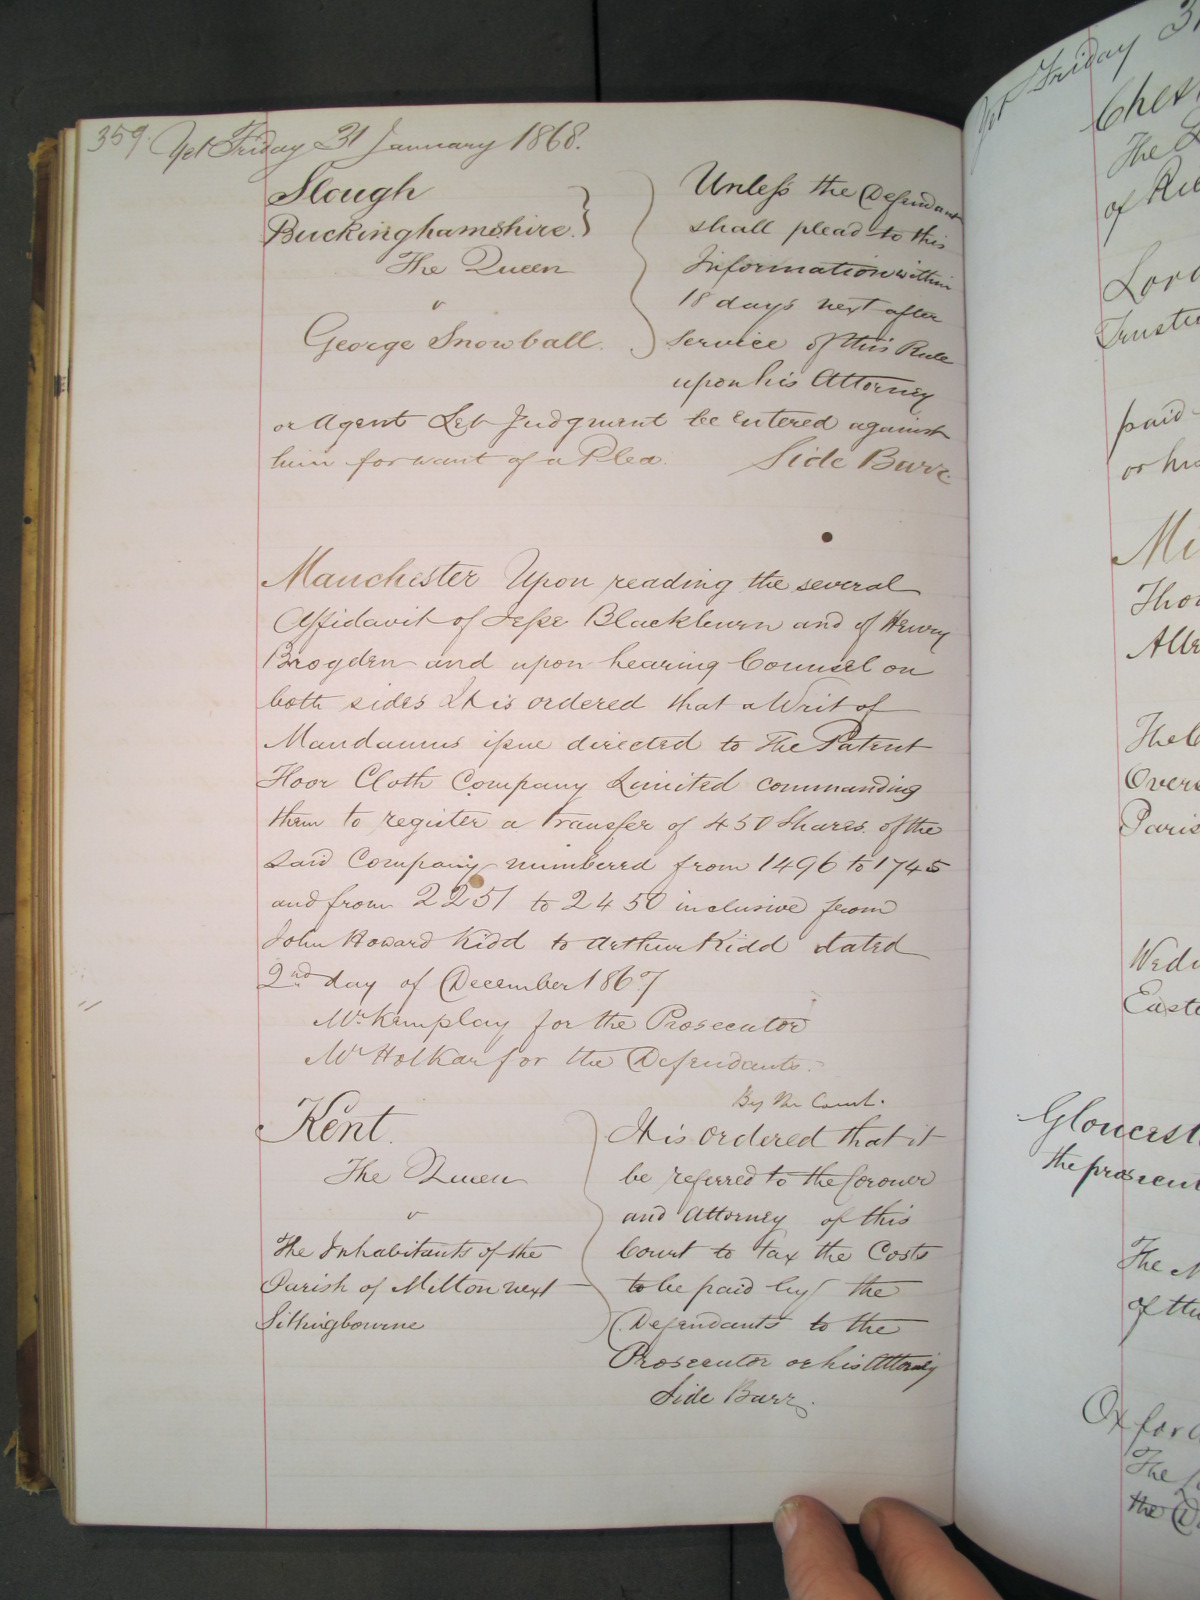 359. Yet Friday 31 January 1868.
Slough
Buckinghamshire.
The Queen
v
George Snowball.
Unless the Defendant
shall plead to this
Information within
18 days next after
service of this Rule
upon his Attorney
or Agent Let Judgment be entered against
him for want of a Plea. Side Barr.
Manchester Upon reading the several
Affidavit of Jesse Blackburn and of Henry
Brogden and upon hearing Counsel on
both sides It is ordered that a Writ of
Mandamus issue directed to The Patent
Floor Cloth Company Limited commanding
them to register a transfer of 450 Shares of the
said Company numbered from 1496 to 1745
and from 2251 to 2450 inclusive from
John Howard Kidd to Arthur Kidd dated
2nd day of December 1867
Mr. Kemplay for the Prosecutor
Mr Holkar for the Defendants.
By the Court.
Kent.
The Queen
v
The Inhabitants of the
Parish of Milton next
Sittingbourne
It is ordered that it
be referred to the Coroner
and Attorney of this
Court to tax the Costs
to be paid by the
Defendants to the
Prosecutor or his Attorney
Side Barr.
Yet Friday 31
The
of
paid
or his
The
of the
The
the